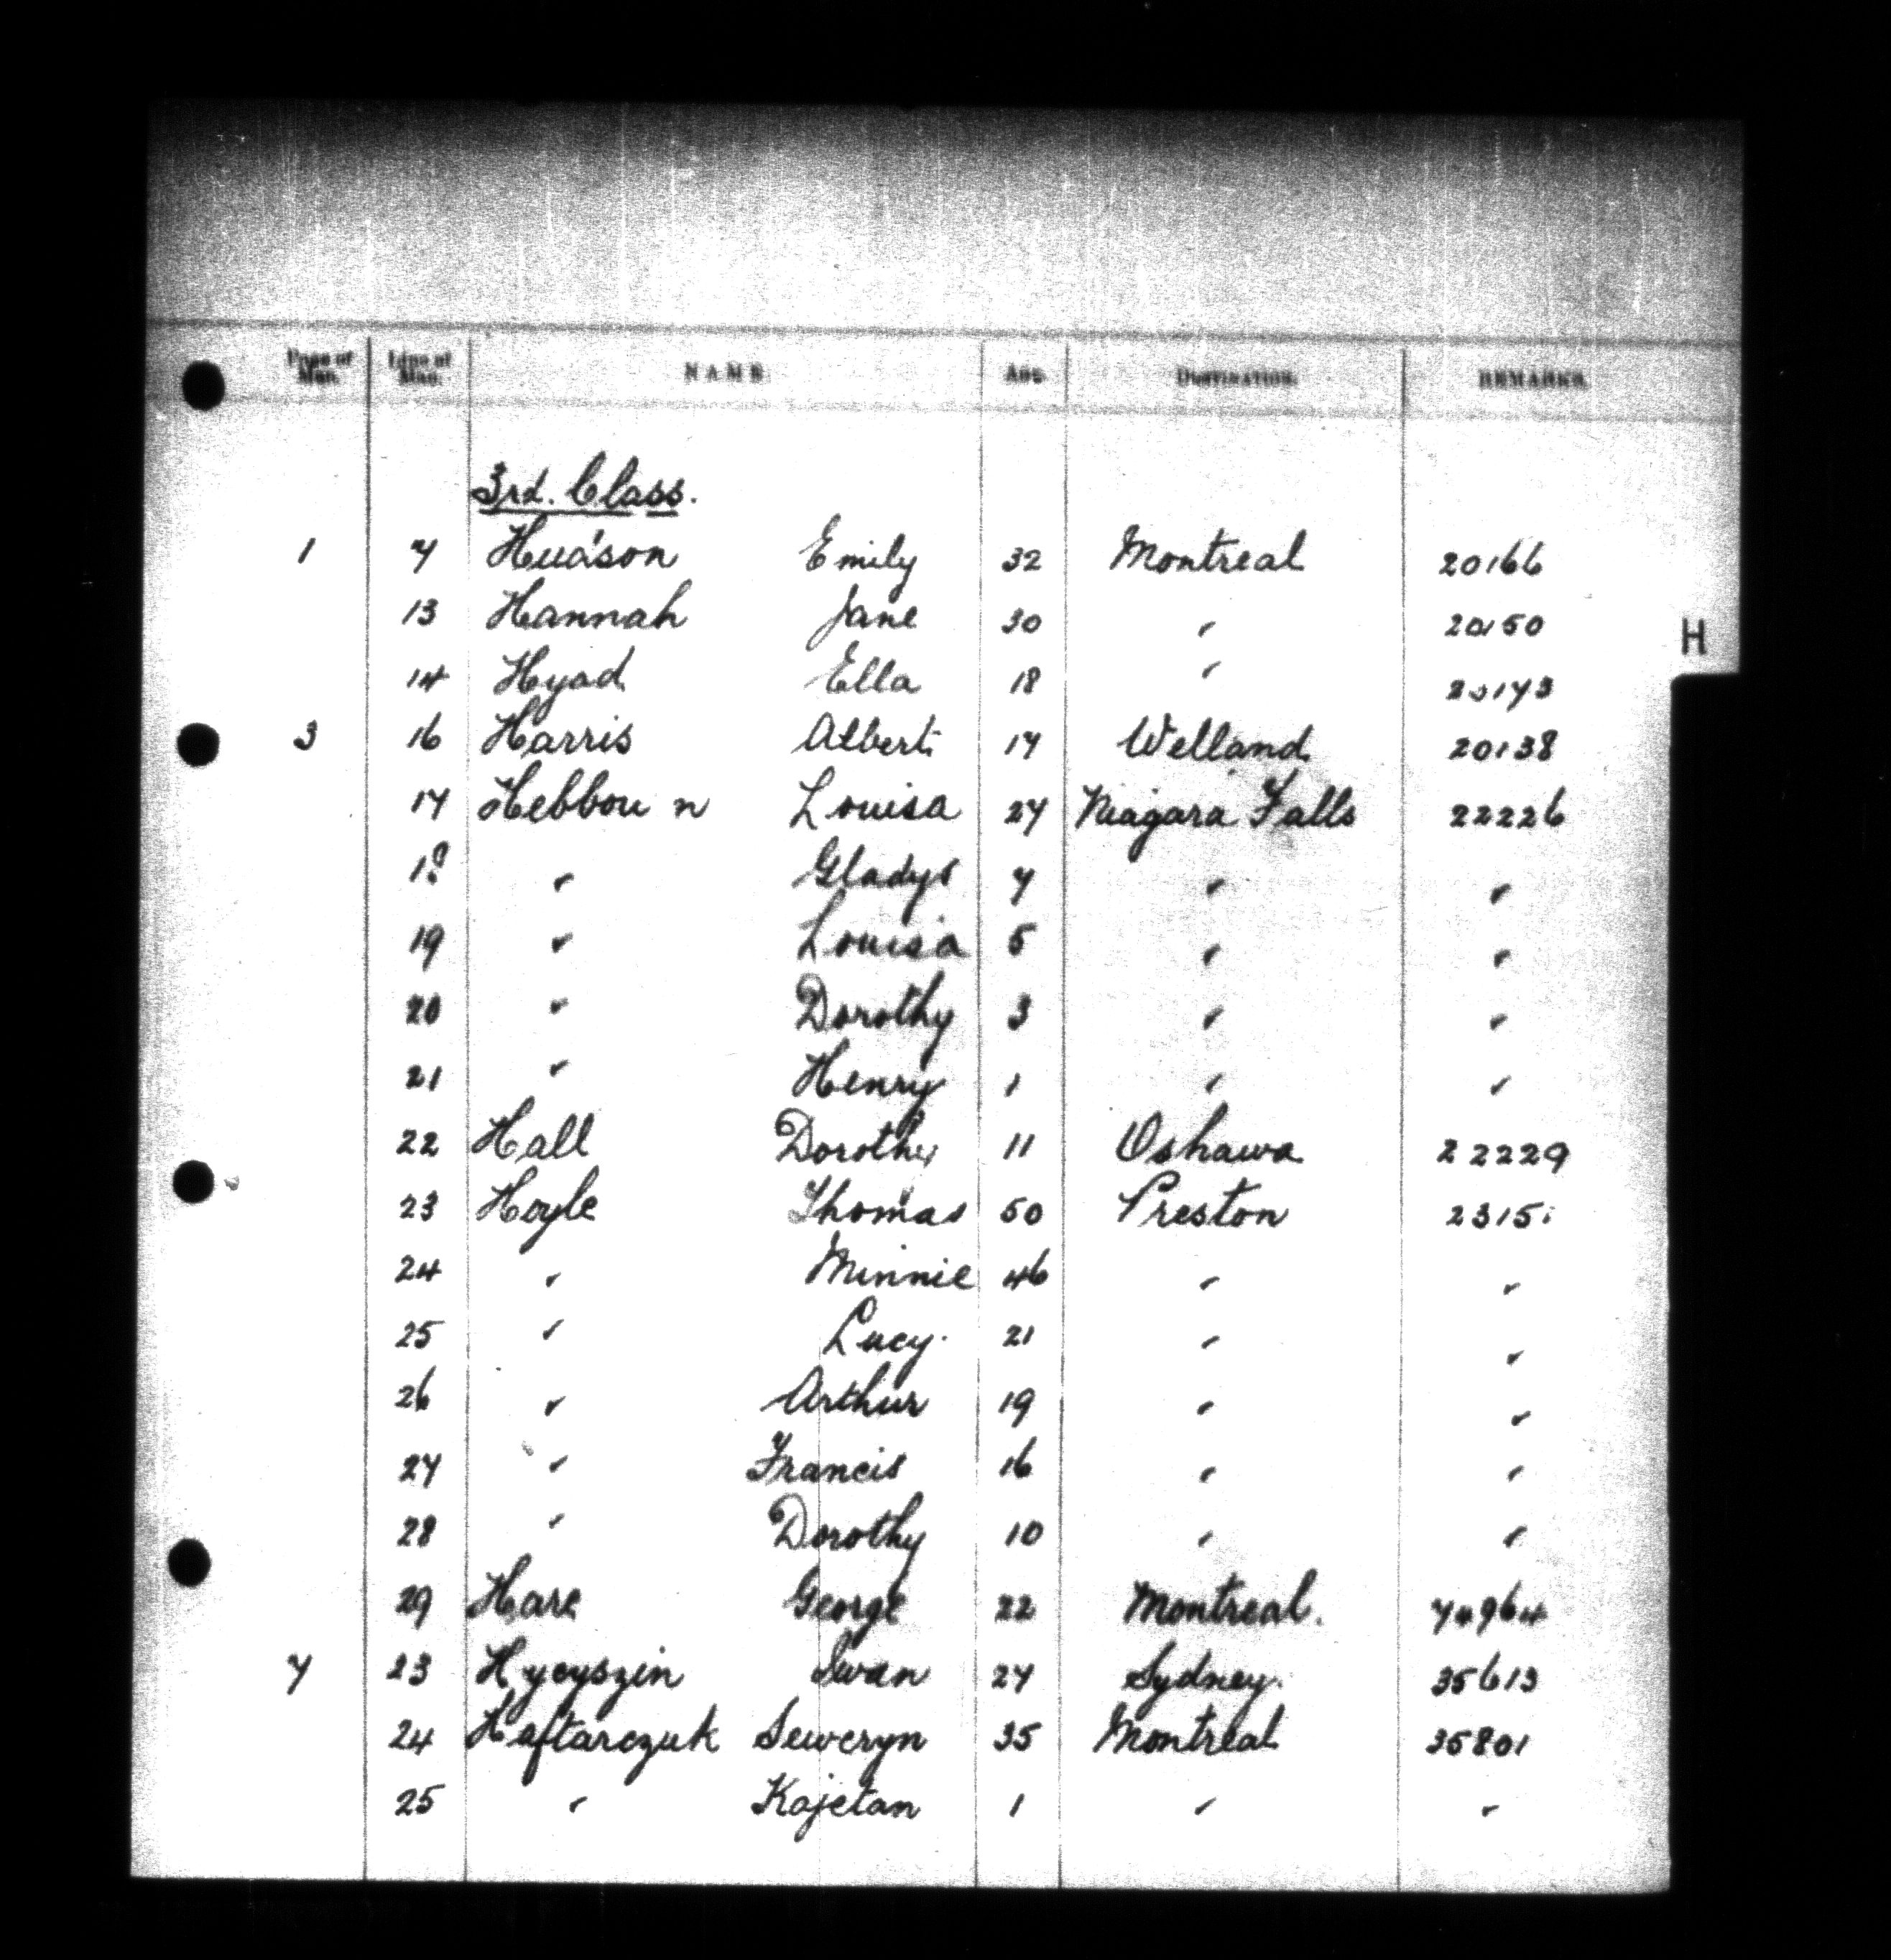 Page of Man. Line of Man. NAME Age. DESTINATION. REMARKS.
3rd. Class.
1 7 Hudson Emily 32 Montreal 20166
13 Hannah Jane 30 " 20150
H
14 Hyad Ella 18 " 20173
3 16 Harris Albert 17 Welland 20138
17 Hebbou n Louisa 27 Niagara Falls 22226
18 " Gladys 7 " "
19 " Louisa 5 " "
20 " Dorothy 3 " "
21 " Henry 1 " "
22 Hall Dorothy 11 Oshawa 22229
23 Hoyle Thomas 50 Preston 23151
24 " Minnie 46 " "
25 " Lucy. 21 " "
26 " Arthur 19 " "
27 " Francis 16 " "
28 " Dorothy 10 " "
29 Hare George 22 Montreal. 74964
7 23 Hycyszin Iwan 27 Sydney. 35613
24 Haftarczuk Seweryn 35 Montreal 35801
25 " Kajetan 1 " "